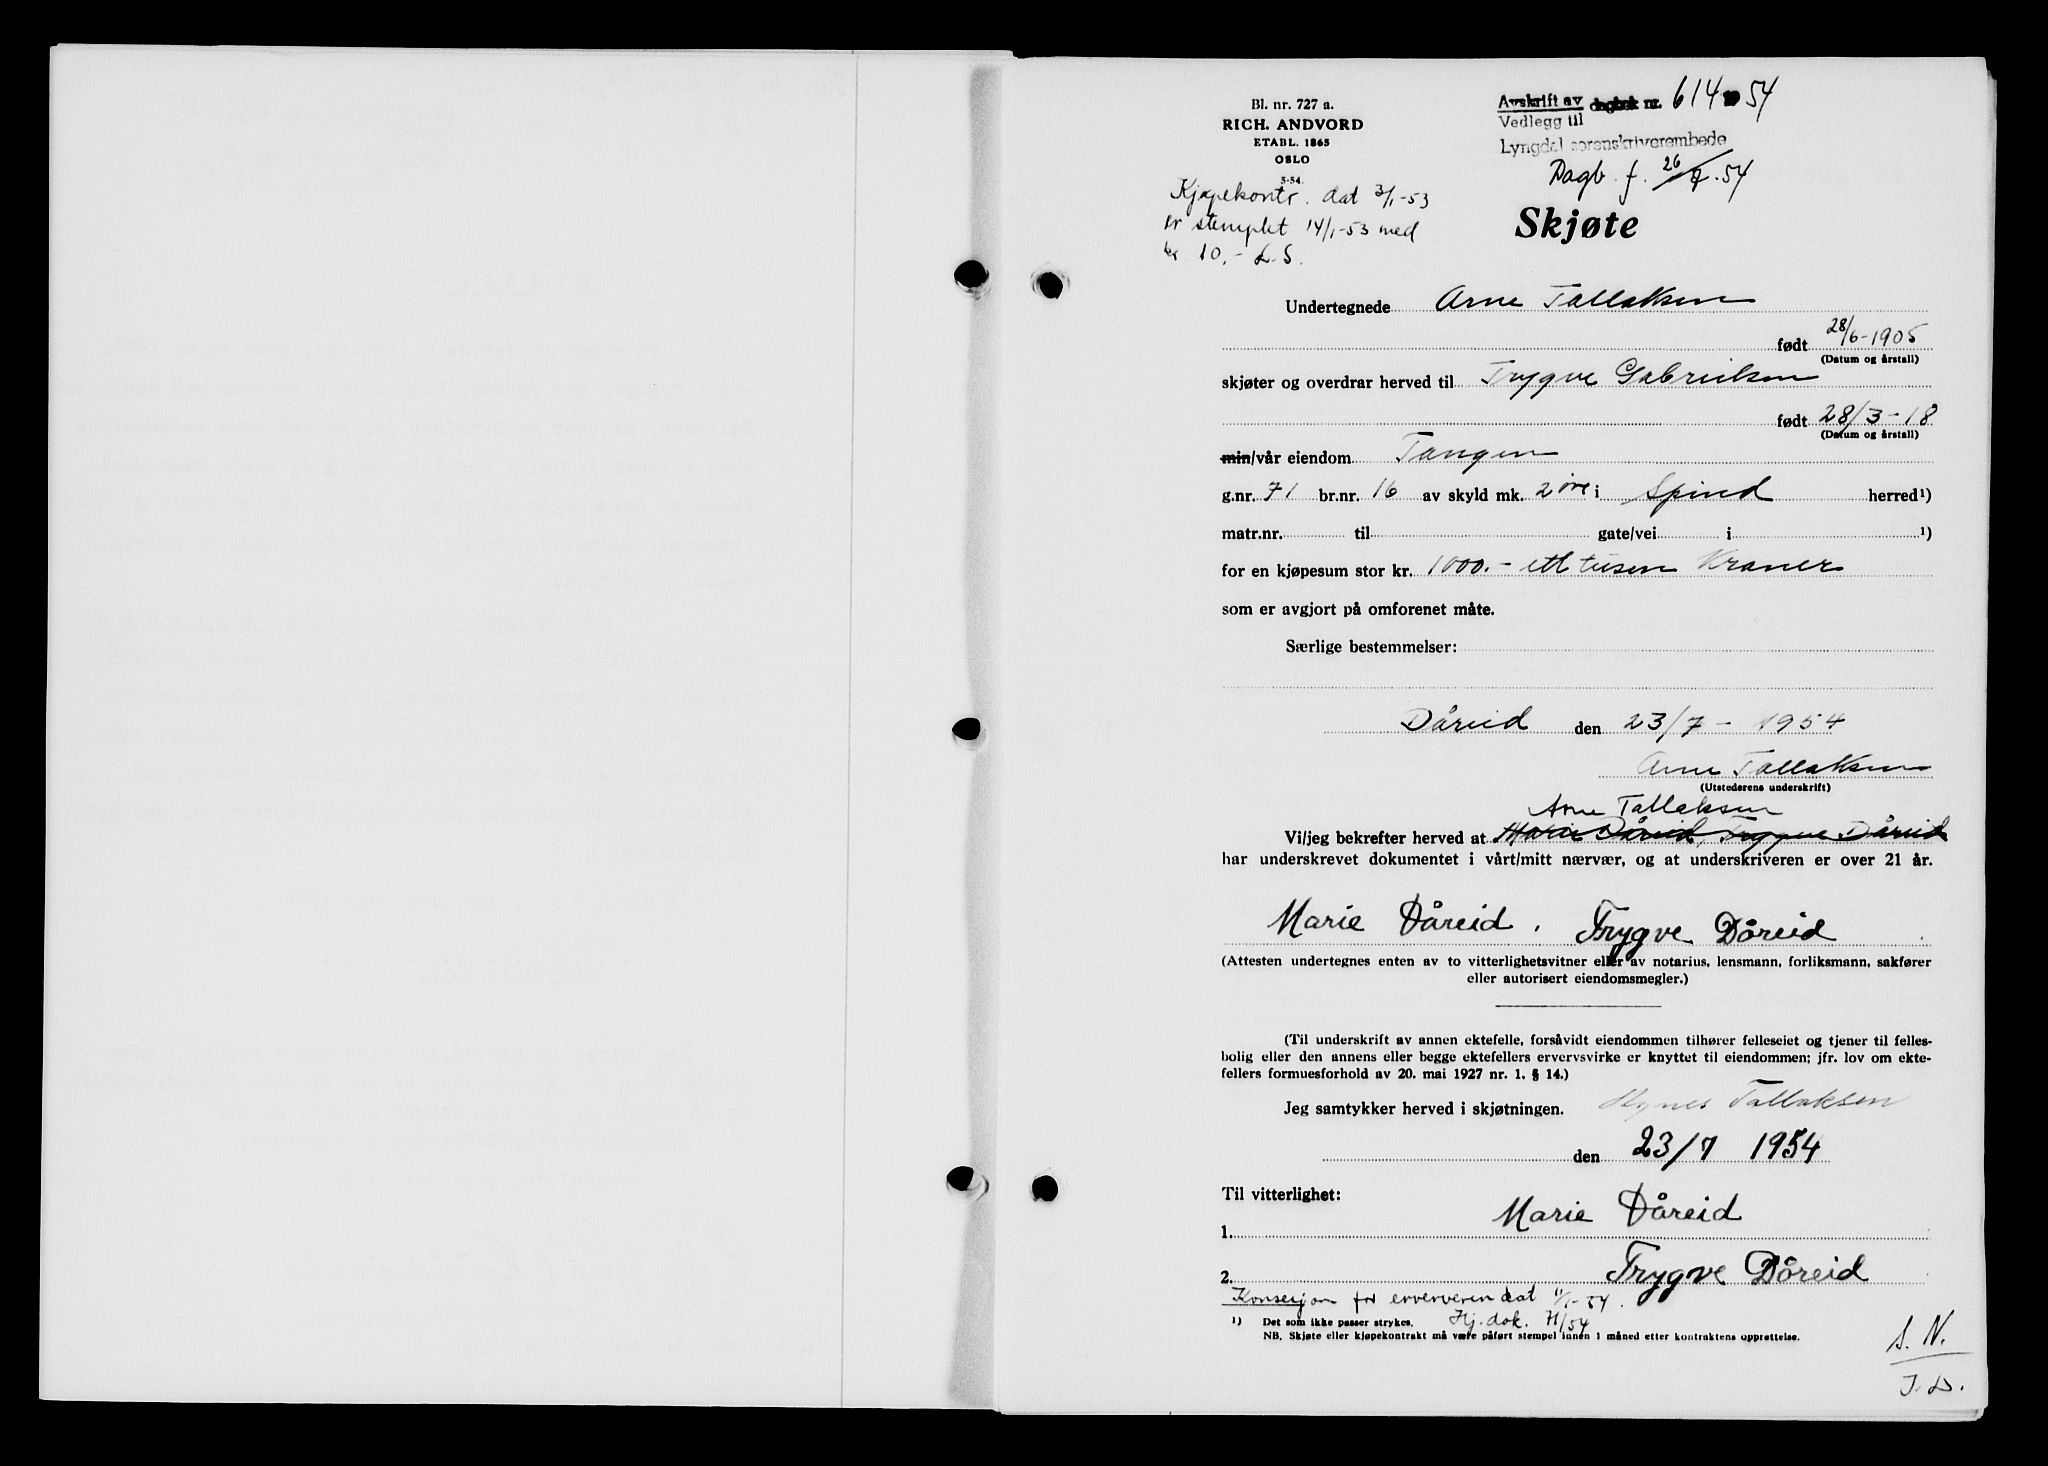 Bl. nr. 727 a.
RICH. ANDVORD
ETABL. 1865
OSLO
5-54.
Avskrift av dagbok nr. 614 1954
Vedlegg til
Lyngdal sorenskriverembede
Dagb. f. 26/7-54
Kjøpekontr. dat 3/1-53
er stemplet 14/1-53 med
kr 10.- L.S.
Skjøte
Undertegnede Arne Tallaksen
født 28/6-1905
(Datum og årstall)
skjøter og overdrar herved til Trygve Gabrielsen
født 28/3-18
(Datum og årstall)
min/vår eiendom Tangen
g.nr. 71 br.nr. 16 av skyld mk. 2 øre i Spind herred¹)
matr.nr. til gate/vei i ¹)
for en kjøpesum stor kr. 1000.- ett tusen Kroner
som er avgjort på omforenet måte.
Særlige bestemmelser:
Dåreid den 23/7-1954
Arne Tallaksen
(Utstederens underskrift)
Arne Tallaksen
Vi/jeg bekrefter herved at Marie Dåreid, Trygve Dåreid
har underskrevet dokumentet i vårt/mitt nærvær, og at underskriveren er over 21 år.
Marie Dåreid. Trygve Dåreid
(Attesten undertegnes enten av to vitterlighetsvitner eller av notarius, lensmann, forliksmann, sakfører
eller autorisert eiendomsmegler.)
(Til underskrift av annen ektefelle, forsåvidt eiendommen tilhører felleseiet og tjener til felles-
bolig eller den annens eller begge ektefellers ervervsvirke er knyttet til eiendommen; jfr. lov om ekte-
fellers formuesforhold av 20. mai 1927 nr. 1. § 14.)
Jeg samtykker herved i skjøtningen. Agnes Tallaksen
den 23/7 1954
Til vitterlighet:
1. Marie Dåreid
2. Trygve Dåreid
Konsesjon for erververen dat 11/1-54.
¹) Det som ikke passer strykes. Hj.dok. 71/54
NB. Skjøte eller kjøpekontrakt må være påført stempel innen 1 måned etter kontraktens opprettelse.
S. N.
J. D.